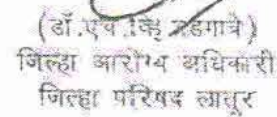 (डॉ.एच.व्हि.वडगावे)
जिल्हा आरोग्य अधिकारी
जिल्हा परिषद लातूर